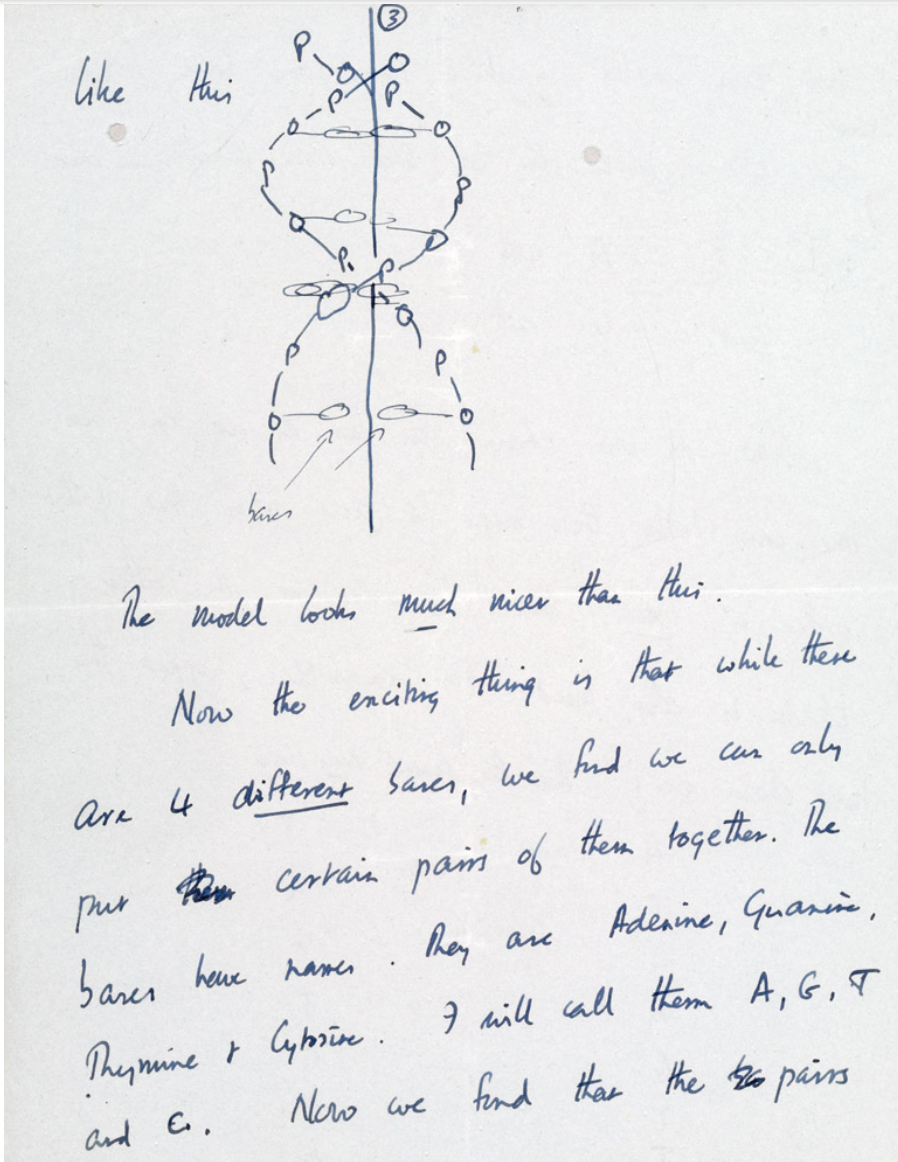 ③
like this
P
O
P
O
P
O
O
P
P
O
O
P
P
O
O
P
P
O
O
bases
The model looks much nicer than this.
Now the exciting thing is that while there
are 4 different bases, we find we can only
put certain pairs of them together. The
bases have names. They are Adenine, Guanine,
Thymine & Cytosine. I will call them A, G, T
and C. Now we find that the pairs